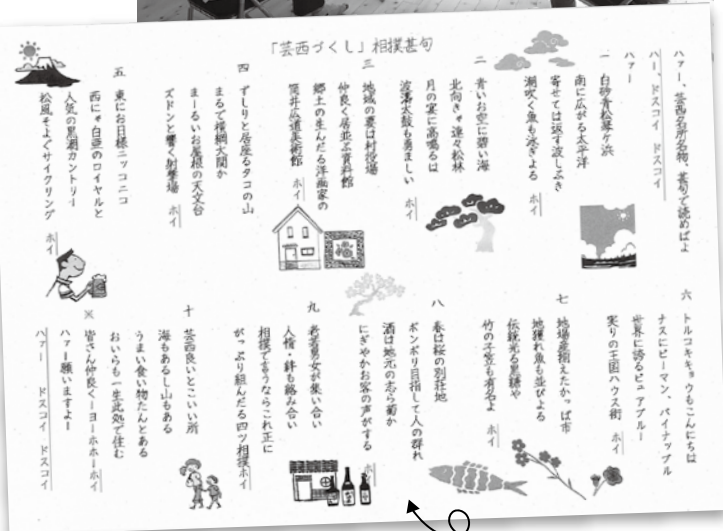 「芸西づくし」相撲甚句
ハァー、芸西名所名物、甚句で読めばよ
ハー、ドスコイ ドスコイ
ハァー
一 白砂青松琴ヶ浜
南に広がる太平洋
寄せては返す波しぶき
潮吹く魚も泳ぎよる ホイ
二 青いお空に碧い海
北向きゃ連々松林
月の宴に高鳴るは
波濤太鼓も勇ましい ホイ
三 地域の要は村役場
仲良く居並ぶ資料館
郷土の生んだる洋画家の
筒井広道美術館 ホイ
四 ずしりと居座るタコの山
まるで横綱大関か
まーるいお屋根の天文台
ズドンと響く射撃場 ホイ
五 東にお日様ニッコニコ
西にゃ白亜のロイヤルと
人気の黒潮カントリー
松風そよぐサイクリング ホイ
六 トルコキキョウもこんにちは
ナスにピーマン、パイナップル
世界に誇るピュアブルー
実りの王国ハウス街 ホイ
七 地場産揃えたかっぱ市
地獲れ魚も並びよる
伝統光る黒糖や
竹の子寿も有名よ ホイ
八 春は桜の別荘地
ボンボリ目指して人の群れ
酒は地元の志ら菊か
にぎやかお客の声がする ホイ
九 老若男女が集い合い
人情・絆も絡み合い
相撲で言うならこれ正に
がっぷり組んだる四ツ相撲ホイ
十 芸西良いとこいい所
海もあるし山もある
うまい食い物たんとある
おいらも一生此処で住む
※ 皆さん仲良くーヨーホホーホイ
ハァー願いますよー
ハァー ドスコイ ドスコイ